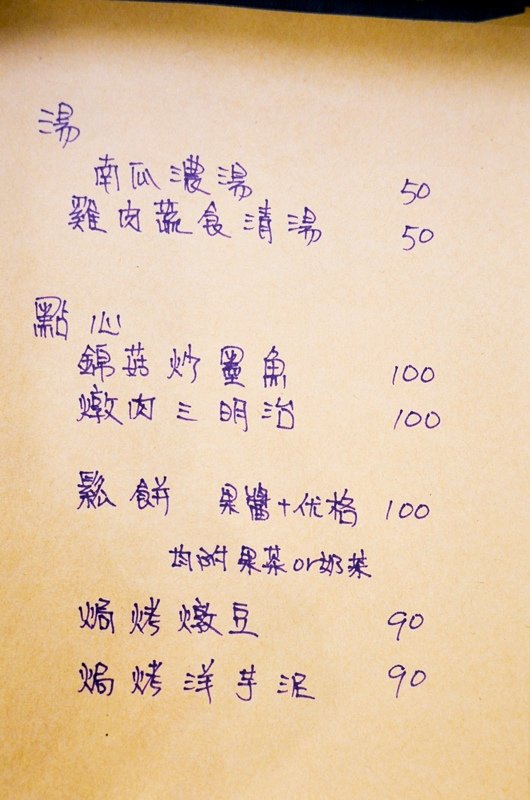 湯
南瓜濃湯 50
雞肉蔬食清湯 50
點心
錦菇炒墨魚 100
燉肉三明治 100
鬆餅 果醬+优格 100
均附果茶or奶茶
焗烤燉豆 90
焗烤洋芋泥 90